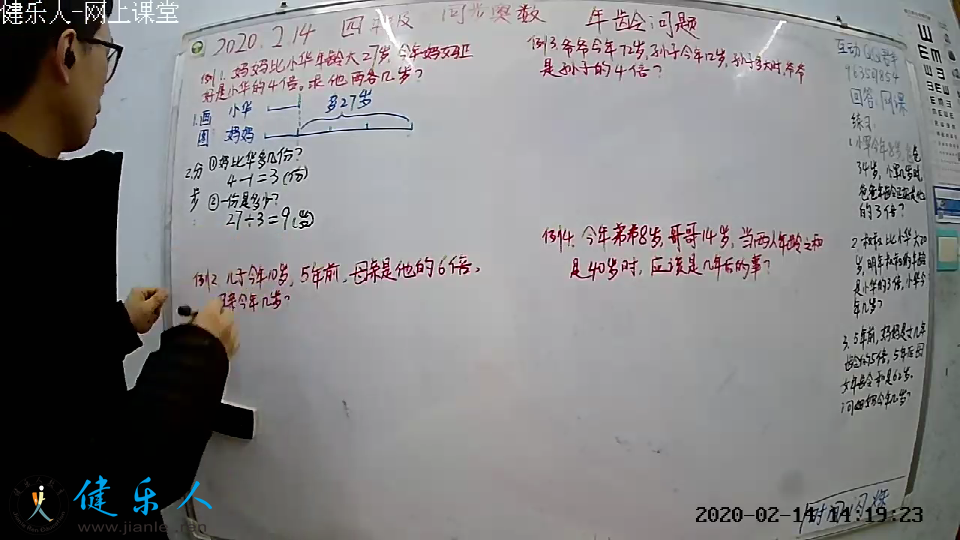 健乐人-网上课堂
2020.2.14 四年级 同步奥数 年龄问题
例1. 妈妈比小华年龄大27岁,今年妈妈正
好是小华的4倍。求他两各几岁?
1.画 小华
多27岁
图 妈妈
2.分 ①妈比华多几份?
4-1=3(份)
步 ②一份是多少?
27÷3=9(岁)
例2 儿子今年10岁,5年前,母亲是他的6倍,
母亲今年几岁?
例3.爷爷今年72岁,孙子今年12岁,孙子多大时,爷爷
是孙子的4倍?
例4. 今年弟弟8岁,哥哥14岁,当两人年龄之和
是40岁时,应该是几年后的事?
回答:网课
练习:
34岁,
的3倍?
2.
是小华的3倍,小华今
年几岁?
3. 5年前,妈妈是
健乐人
www.jianle.ren
2020-02-14 14:19:23